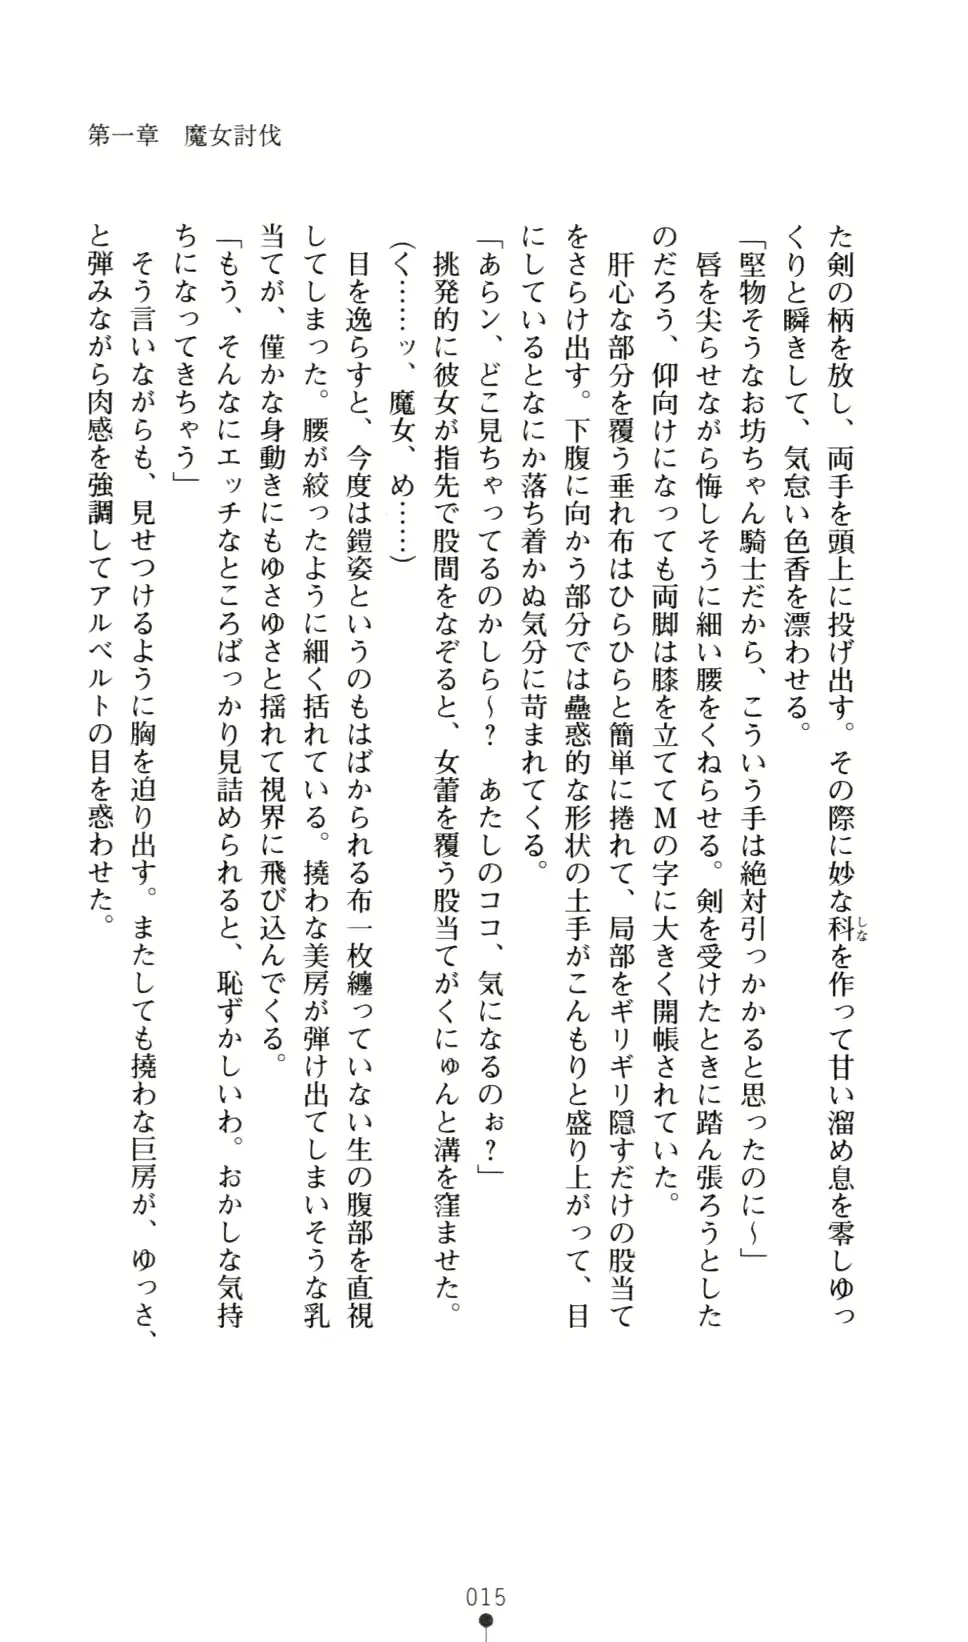 第一章　魔女討伐
た剣の柄を放し、両手を頭上に投げ出す。その際に妙な科を作って甘い溜め息を零しゆっ
しな
くりと瞬きして、気怠い色香を漂わせる。
「堅物そうなお坊ちゃん騎士だから、こういう手は絶対引っかかると思ったのに～」
唇を尖らせながら悔しそうに細い腰をくねらせる。剣を受けたときに踏ん張ろうとした
のだろう、仰向けになっても両脚は膝を立ててＭの字に大きく開帳されていた。
肝心な部分を覆う垂れ布はひらひらと簡単に捲れて、局部をギリギリ隠すだけの股当て
をさらけ出す。下腹に向かう部分では蠱惑的な形状の土手がこんもりと盛り上がって、目
にしているとなにか落ち着かぬ気分に苛まれてくる。
「あらン、どこ見ちゃってるのかしら～？　あたしのココ、気になるのぉ？」
挑発的に彼女が指先で股間をなぞると、女蕾を覆う股当てがくにゅんと溝を窪ませた。
（く……ッ、魔女、め……）
目を逸らすと、今度は鎧姿というのもはばかられる布一枚纏っていない生の腹部を直視
してしまった。腰が絞ったように細く括れている。撓わな美房が弾け出てしまいそうな乳
当てが、僅かな身動きにもゆさゆさと揺れて視界に飛び込んでくる。
「もう、そんなにエッチなところばっかり見詰められると、恥ずかしいわ。おかしな気持
ちになってきちゃう」
そう言いながらも、見せつけるように胸を迫り出す。またしても撓わな巨房が、ゆっさ、
と弾みながら肉感を強調してアルベルトの目を惑わせた。
015